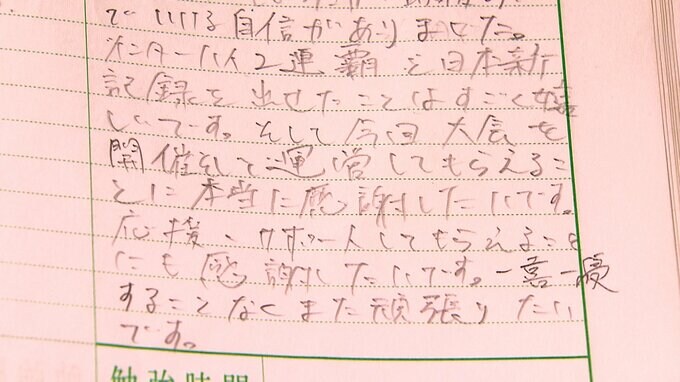 でいける自信がありました。
インターハイ2連覇と日本新
記録を出せたことはすごく嬉
しいです。そして今回大会を
開催そして運営してもらえるこ
とに本当に感謝したいです。
応援、サポートしてもらえること
にも感謝したいです。一喜一憂
することなくまた頑張りたい
です。
勉強時間